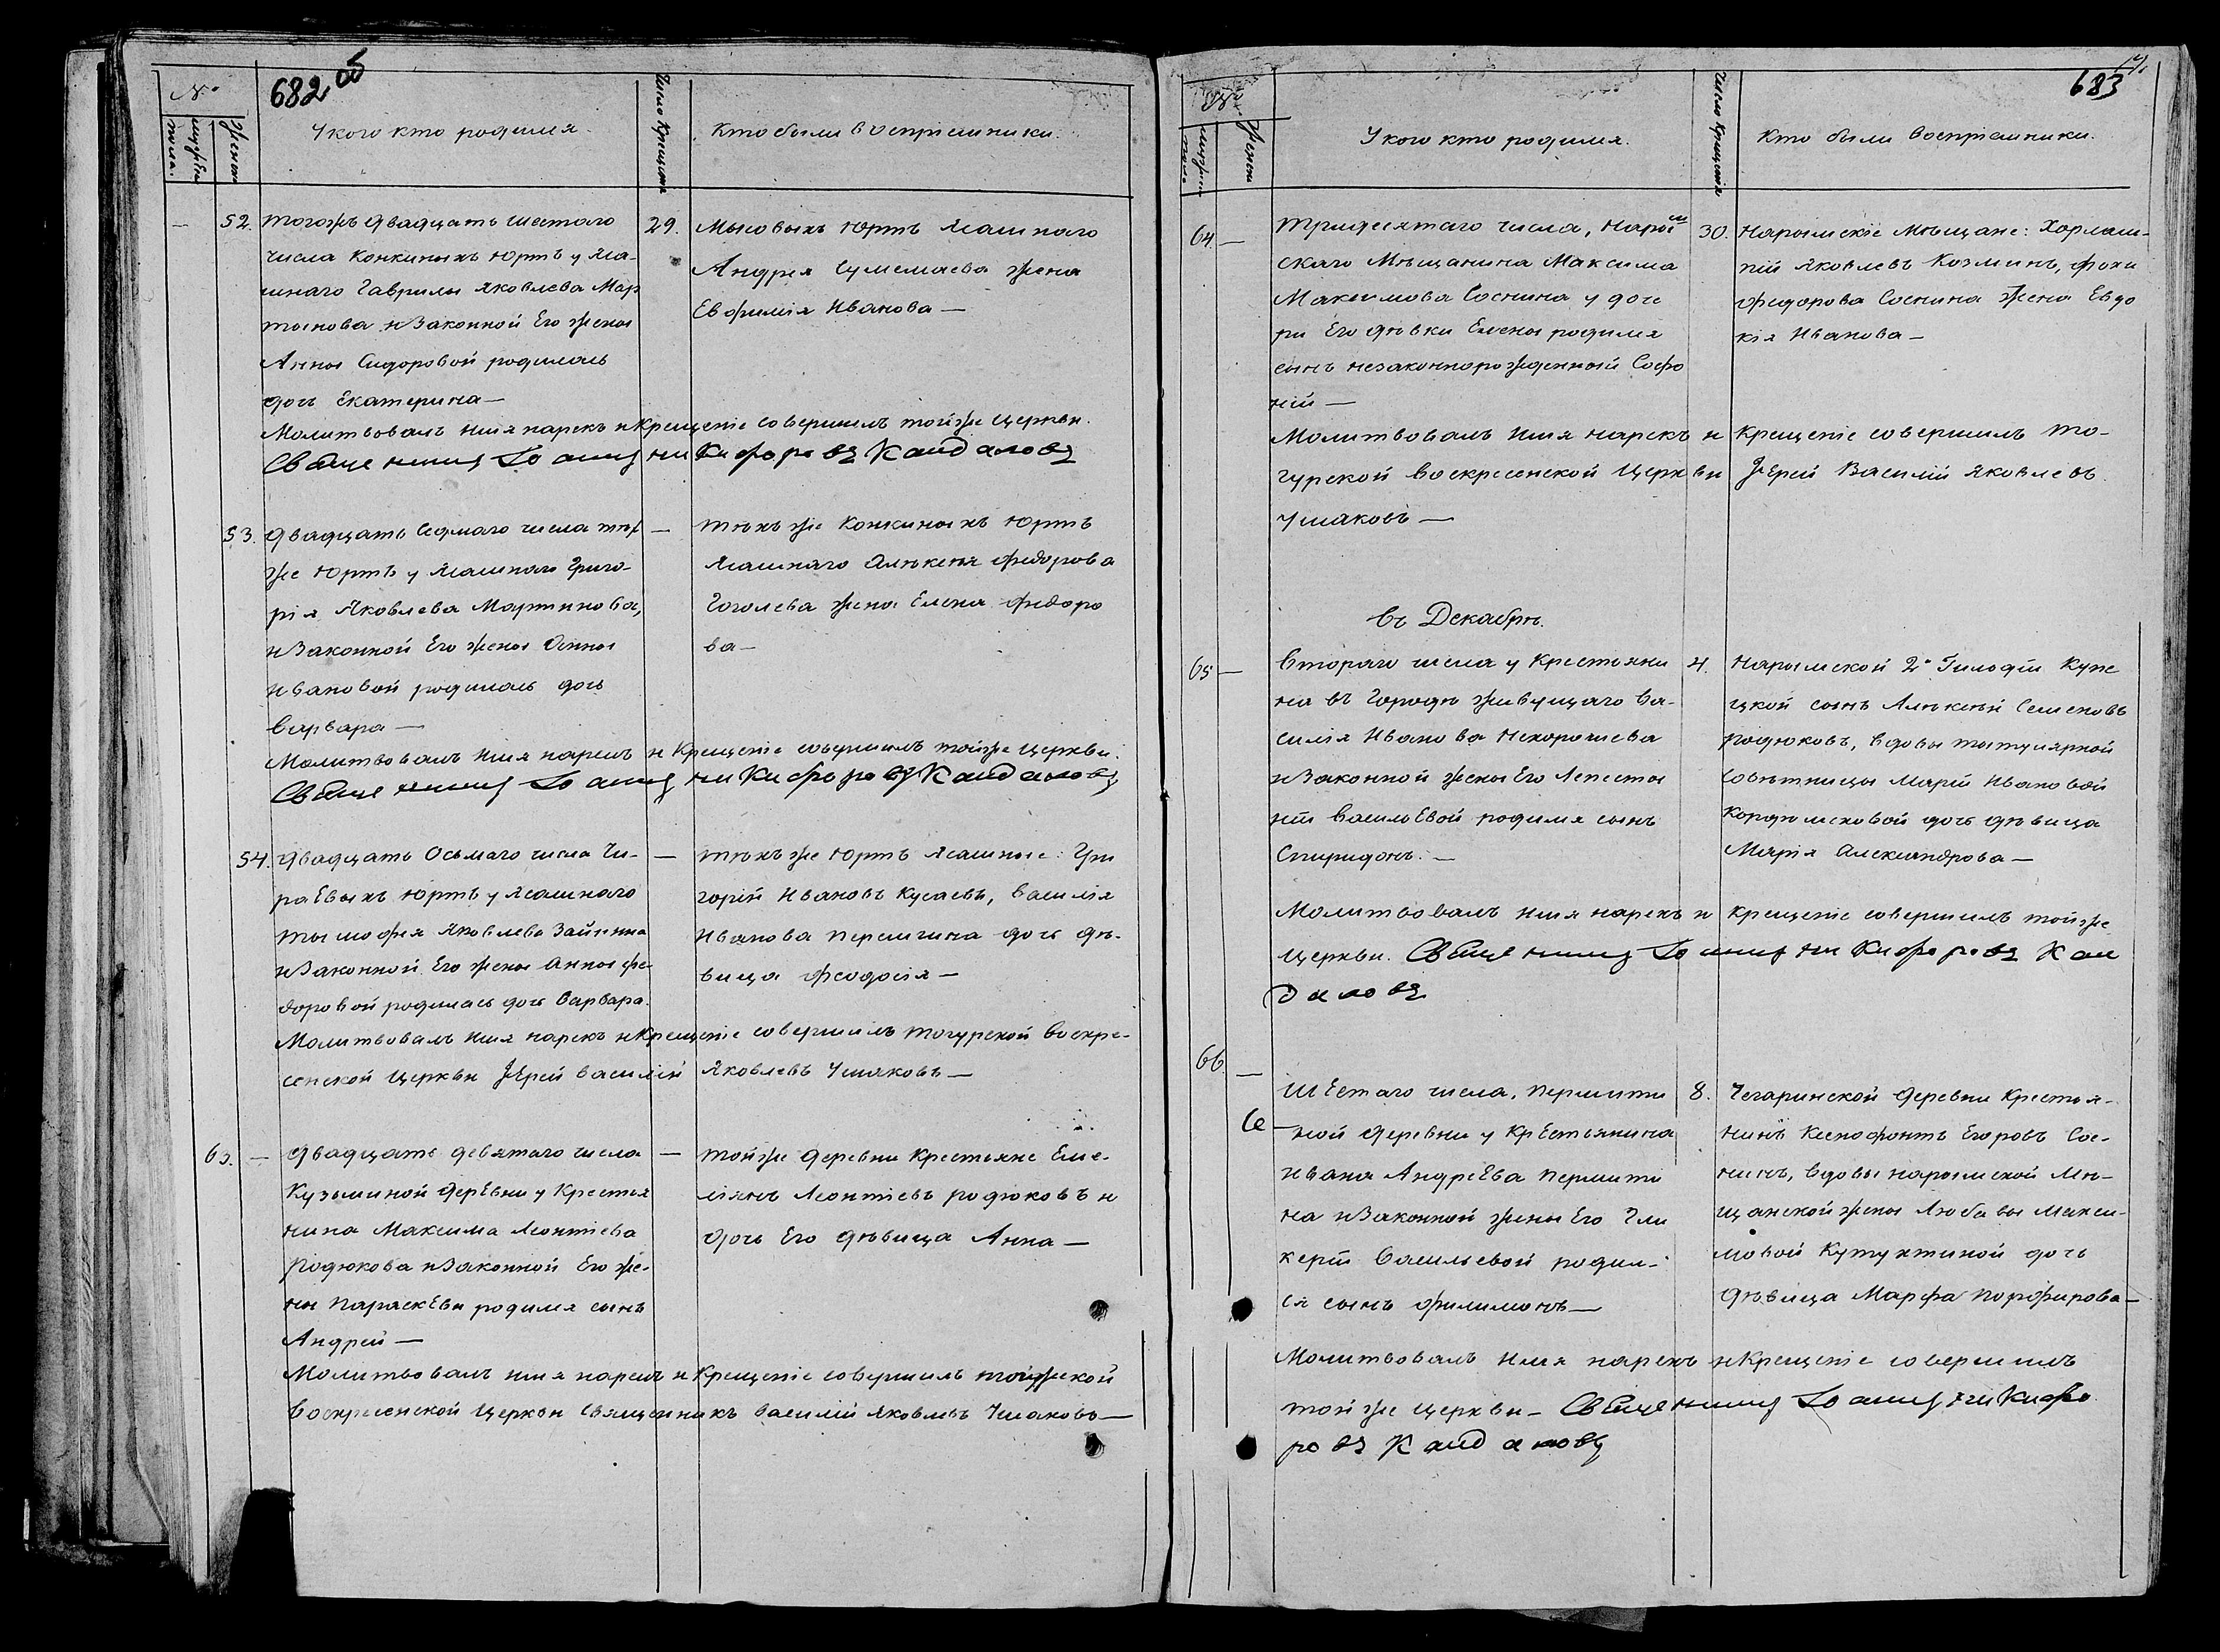 682 об
№
мужска
пола.
женска
У кого кто родился.
Число Крещенія
Кто были восприемники.
— 52. Тогожъ двадцать шестаго
числа Конкиныхъ Юртъ у Яса-
шнаго Гаврилы Яковлева Мар
тынова и Законной Его жены
Анны Сидоровой родилась
дочь Екатерина —
29. Мысовыхъ Юртъ Ясашнаго
Андрея Сумемаева жена
Евфимія Иванова —
Молитвовалъ имя нарекъ и Крещеніе совершилъ тойже церкви.
Священникъ Іоаннъ Никифоровъ Кайдаловъ
53. Двадцать Седмаго числа тѣх
же Юртъ у Ясашнаго Григо-
рія Яковлева Мартинова,
и Законной Его жены Анны
Ивановой родилась дочь
Варвара —
— Тѣхъ же Конкиныхъ Юртъ
Ясашнаго Алѣксѣя Федорова
Гоголева жена Елена Федоро
ва —
Молитвовалъ имя нарекъ и Крещеніе совершилъ тойже церкви.
Священникъ Іоаннъ Никифоровъ Кайдаловъ
54. Двадцать Осьмаго числа Чи-
раЕвыхъ Юртъ у Ясашнаго
Тымофея Яковлева
и Законной Его жены Анны Фе-
доровой родилась дочь Варвара.
— Тѣхъ же Юртъ Ясашные: Гри
горій Ивановъ Кусаевъ, Василія
Иванова Перемитина дочь дѣ-
вица Феодосія —
Молитвовалъ имя нарекъ и Крещеніе совершилъ Тогурской Воскре-
сенской церкви Іерей Василій Яковлевъ Ушаковъ —
63. — Двадцать девятаго числа
Кузьминой дерЕвни у Крестья
нина Максима Леонтіева
Родюкова и Законной Его же-
ны ПараскЕвы родился сынъ
Андрей —
— Тойже деревни Крестьяне Еме-
ліянъ Леонтіевъ Родюковъ и
дочь Его дѣвица Анна —
Молитвовалъ имя нарекъ и Крещеніе совершилъ
Воскресенской церкви Священникъ Василій Яковлевъ Ушаковъ —
683
№
мужска
пола
женска
У кого кто родился.
Число Крещенія
Кто были восприемники.
64 — Тридесятаго числа, Нарым
скаго Мѣщанина Максима
Максимова Соснина у доче
ри Его дѣвки Елены родился
сынъ незаконнорожденный Софо
ній —
30. Нарымскіе Мѣщане: Харлам-
пій Яковлевъ Козминъ, Фоки
Федорова Соснина жена Евдо
кія Иванова —
Молитвовалъ имя нарекъ и Крещеніе совершилъ То-
гурской Воскресенской церкви Іерей Василій Яковлевъ
Ушаковъ —
въ Декабрѣ.
65 — Втораго числа у Крестьяни
на въ Городѣ живущаго Ва-
силія Иванова Нехорошева
и Законной жены Его
Васильевой родился сынъ
Спиридонъ. —
4. Нарымской 2й Гильдіи Купе
цкой сынъ Алѣксѣй Семеновъ
Родюковъ, вдовы титулярной
Совѣтницы Маріи Ивановой
дочь дѣвица
Марія Александрова —
Молитвовалъ имя нарекъ и крещеніе совершилъ тойже
церкви. Священникъ Іоаннъ Никифоровъ Кай
даловъ
66. —
Шестаго числа, Пермити
ной деревни у КрЕстьянина
Ивана АндреЕва Пермити
на и Законной жены Его Гли
керіи Васильевой родил-
ся сынъ Филимонъ —
8. Чегаринской деревни Крестья-
нинъ Ксенофонтъ Егоровъ Сос-
нинъ, вдовы нарымской Мѣ-
щанской жены Любавы Макси-
мовой Кутухтиной дочь
дѣвица Марфа Порфирова —
Молитвовалъ имя нарекъ и Крещеніе совершилъ
той же церкви — Священникъ Іоаннъ Никифо
ровъ Кайдаловъ